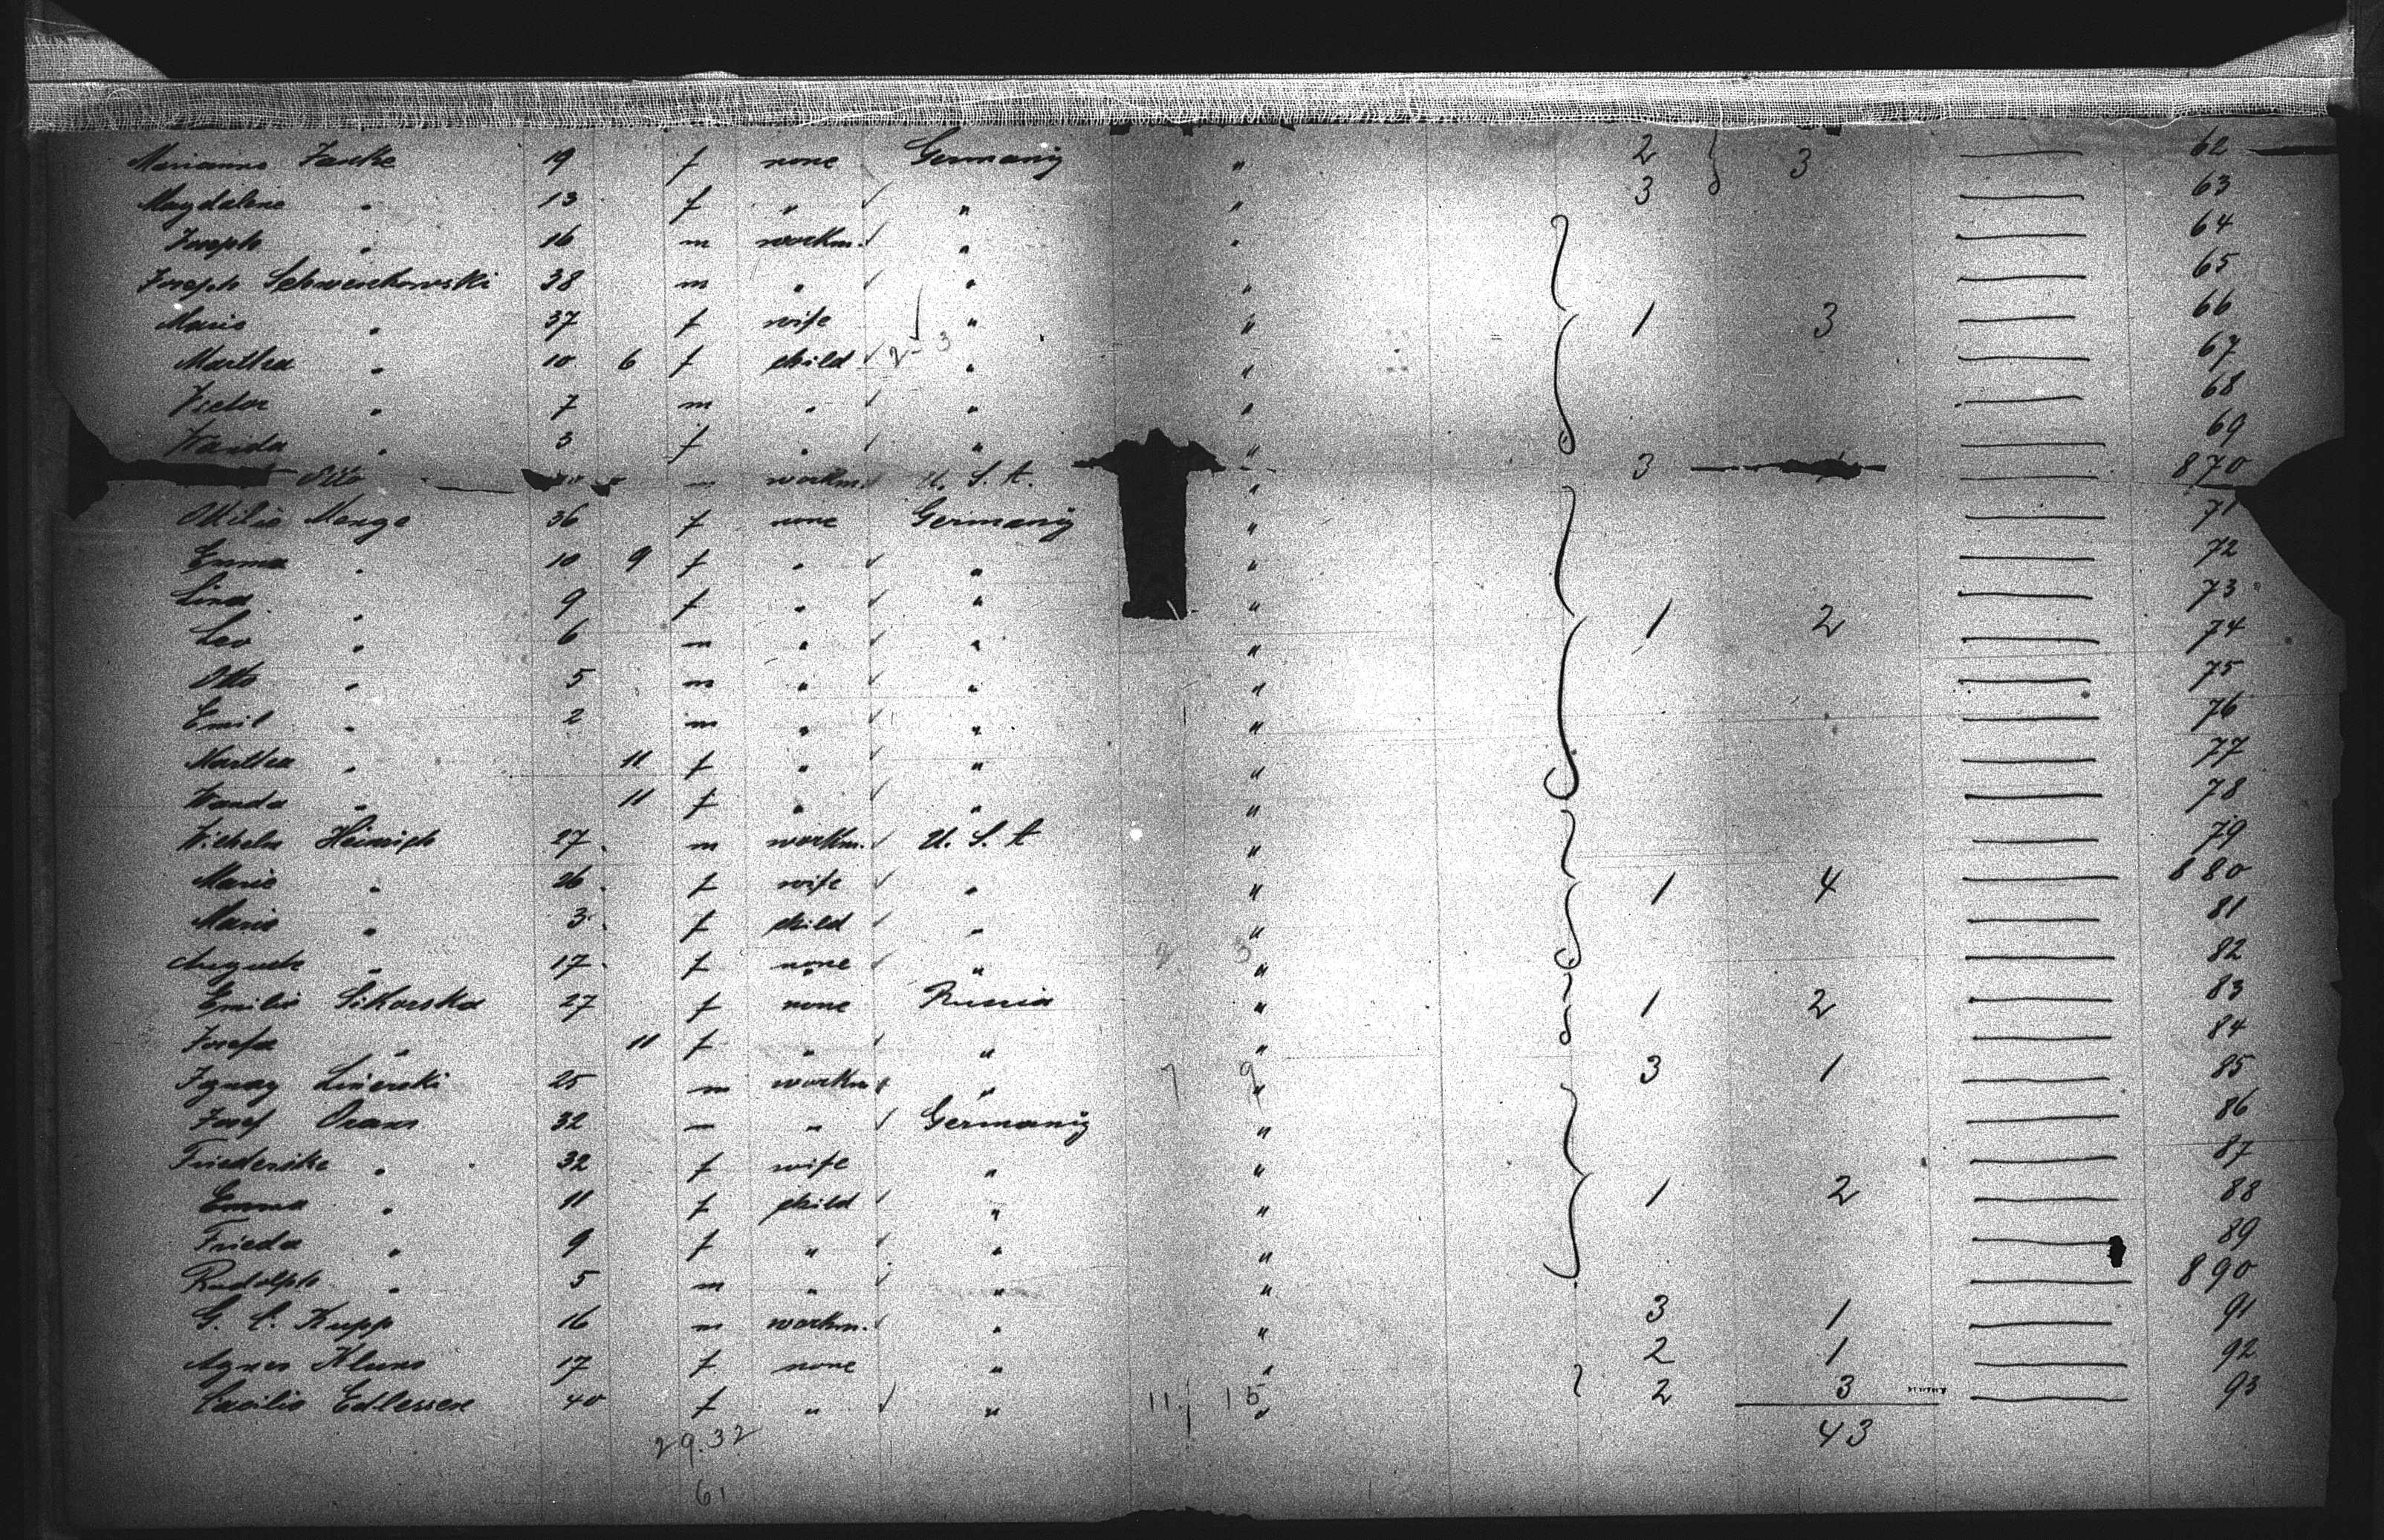 Marianna Janke 19 f none Germany " 2 3 62
Magdalene " 13 f " " " 3 63
Joseph " 16 m workm. " " 64
Joseph 38 m " " " 65
Marie " 37 f wife " " 1 3 66
Martha " 10 6 f child 2-3 " " 67
Victor " 7 m " " " 68
Wanda " 3 f " " " 69
Otto m workm. U. S. A. " 3 870
Ottilie Menge 36 f none Germany " 71
Emma " 10 9 f " " " 72
Lina " 9 f " " " 73
Leo " 6 m " " " 1 2 74
Otto " 5 m " " " 75
Emil " 2 m " " " 76
Martha " 11 f " " " 77
Wanda " 11 f " " " 78
Wilhelm Heinrich 27 m workm. U. S. A " 79
Marie " 26 f wife " " 1 4 880
Marie " 3 f child " " 81
Auguste " 17 f none " 2 3 " 82
Emilie Sikorska 27 f none Russia " 1 2 83
Josefa " 11 f " " " 84
Ignaz 25 m workm " 7 9 " 3 1 85
Josef 32 m " Germany " 86
Friederike " 32 f wife " " 87
Emma " 11 f child " " 1 2 88
Frieda " 9 f " " " 89
Rudolph " 5 m " " " 890
G. C. Kupp 16 m workm. " " 3 1 91
Agnes 17 f none " " 2 1 92
Cecilie Edlessen 40 f " " 11 15 " 2 3 93
29.32 43
61